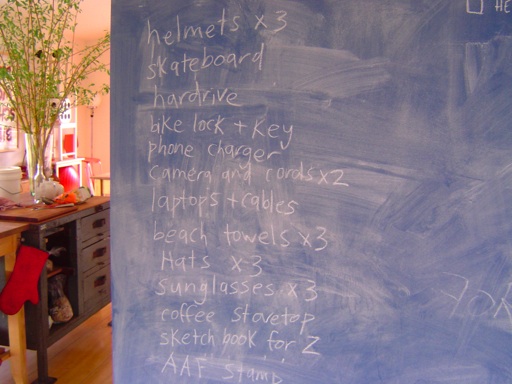 HE
helmets x3
skateboard
hardrive
bike lock + key
phone charger
camera and cords x2
laptops + cables
beach towels x3
Hats x3
sunglasses x3
coffee stovetop
sketch book for Z
AAF stamp